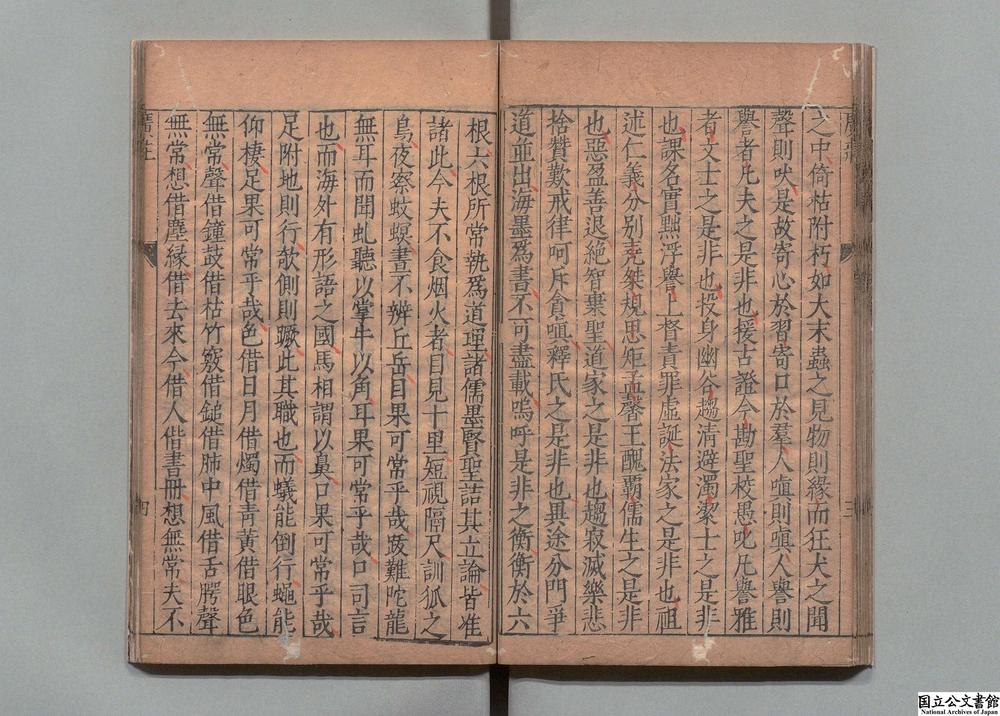 之中倚枯附朽如大末蟲之見物則緣而狂犬之聞
聲則吠是故寄心於習寄口於羣人嗔則嗔人譽則
譽者凡夫之是非也援古證今勘聖校愚叱凡譽雅
者文士之是非也投身幽谷趨清避濁潔士之是非
也課名實黜浮譽上督責罪虛誕法家之是非也祖
述仁義分別堯桀規思矩孟馨王醜覇儒生之是非
也惡盈善退絕智棄聖道家之是非也趨寂滅樂悲
捨贊歎戒律呵斥貪嗔釋氏之是非也異途分門爭
道並出海墨為書不可盡載嗚呼是非之衡衡於六
廣莊
三
根六根所常執為道理諸儒墨賢聖詰其立論皆准
諸此今夫不食烟火者目見十里短視隔尺訓狐之
鳥夜察蚊螟晝不辨丘岳目果可常乎哉跋難陀龍
無耳而聞虬聽以掌牛以角耳果可常乎哉口司言
也而海外有形語之國馬相謂以鼻口果可常乎哉
足附地則行欹側則蹶此其職也而蟻能倒行蠅能
仰棲足果可常乎哉色借日月借燭借青黃借眼色
無常聲借鐘鼓借枯竹竅借鎚借肺中風借舌腭聲
無常想借塵緣借去來今借人借書冊想無常夫不
廣莊
四
国立公文書館
National Archives of Japan